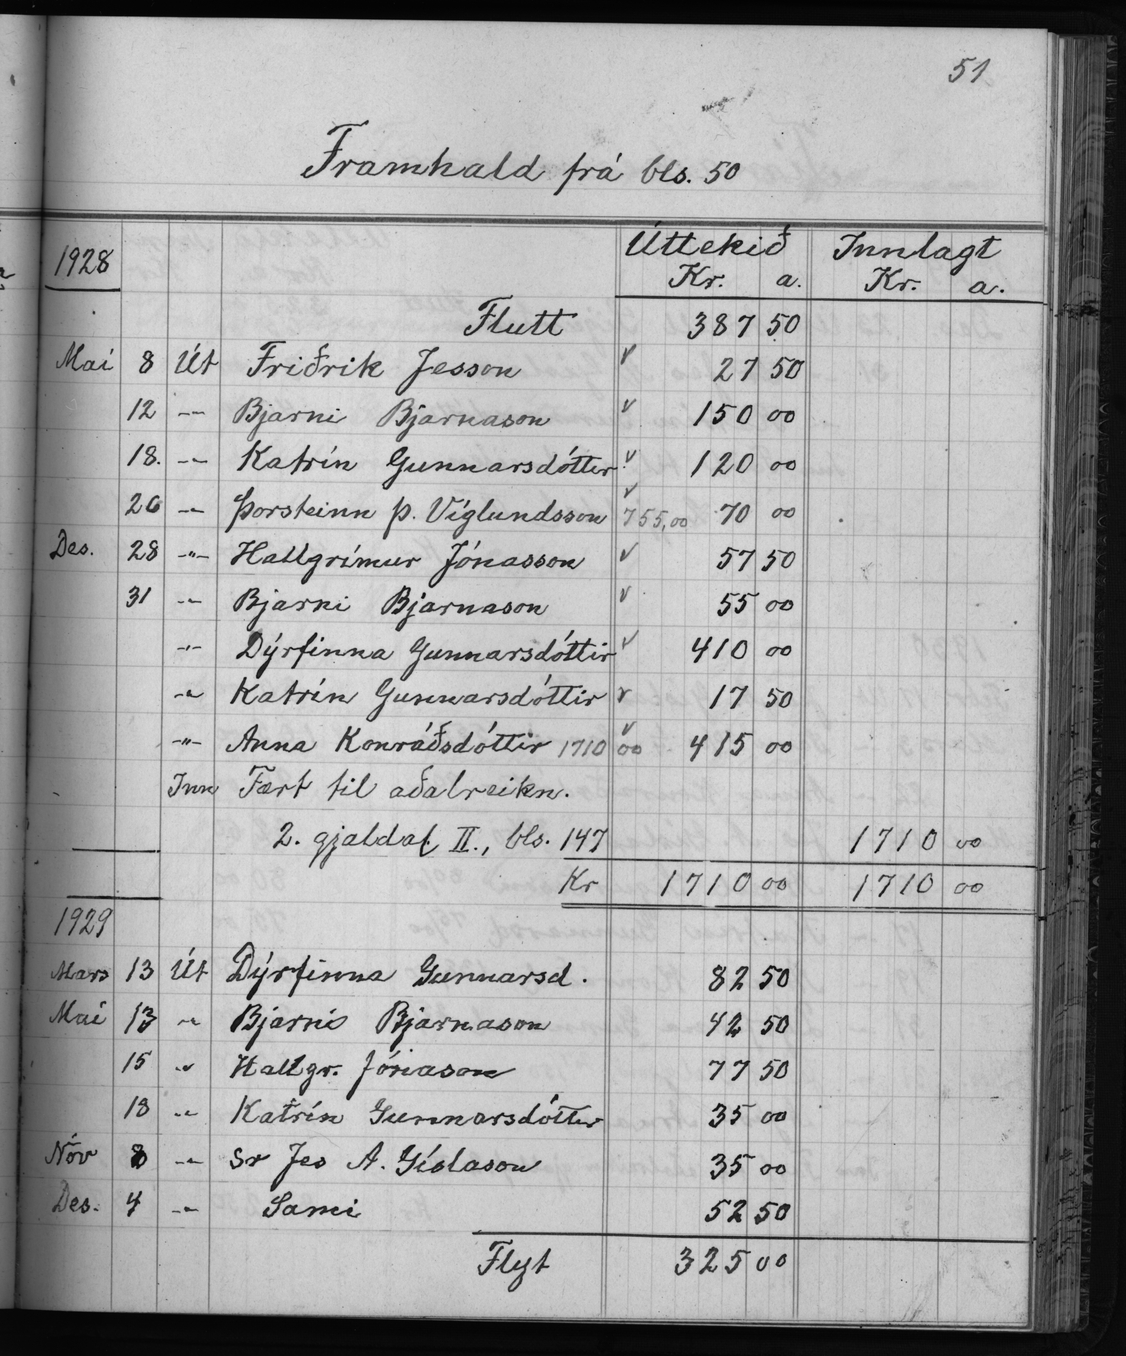 51
Framhald frá bls. 50
1928 Úttekið Innlagt
Kr. a. Kr. a.
Flutt 387 50
Mai 8 Út Friðrik Jesson v 27 50
12 -"- Bjarni Bjarnason v 150 00
18. -"- Katrín Gunnarsdóttir v 120 00
26 -"- Þorsteinn Þ. Víglundsson v 755,00 70 00
Des. 28 -"- Hallgrímur Jónasson v 57 50
31 -"- Bjarni Bjarnason v 55 00
-"- Dýrfinna Gunnarsdóttir v 410 00
-"- Katrín Gunnarsdóttir v 17 50
-"- Anna Konráðsdóttir 1710 00 v 415 00
Inn Fært til aðalreikn.
2. gjaldaf. II., bls. 147 1710 00
Kr 1710 00 1710 00
1929
Mars 13 Út Dýrfinna Gunnarsd. 82 50
Mai 13 -"- Bjarni Bjarnason 42 50
15 -"- Hallgr. Jónason 77 50
18 -"- Katrín Gunnarsdóttir 35 00
Nóv 8 -"- Sr Jes A. Gíslason 35 00
Des. 4 -"- Sami 52 50
Flyt 325 00